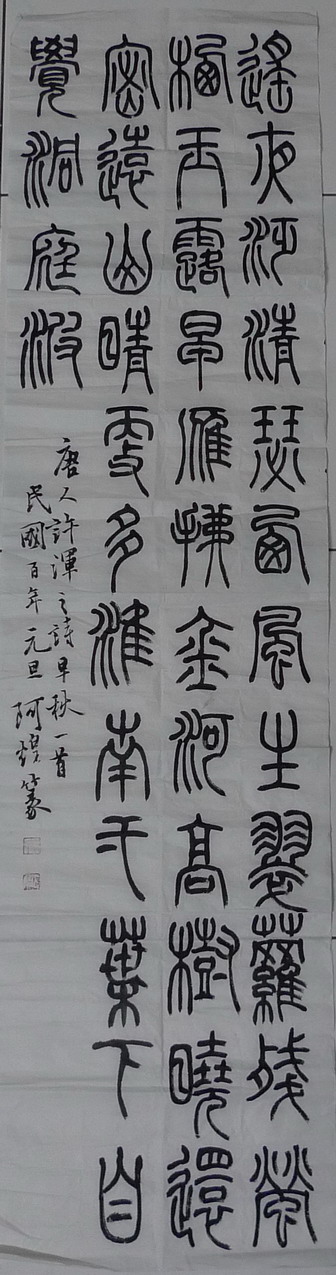 遙夜汎清瑟西風生翠蘿殘螢
栖玉露早雁拂金河高樹曉還
密遠山晴更多淮南弌葉下自
覺洞庭波
唐人許渾之詩早秋一首
民國百年元旦阿煌篆